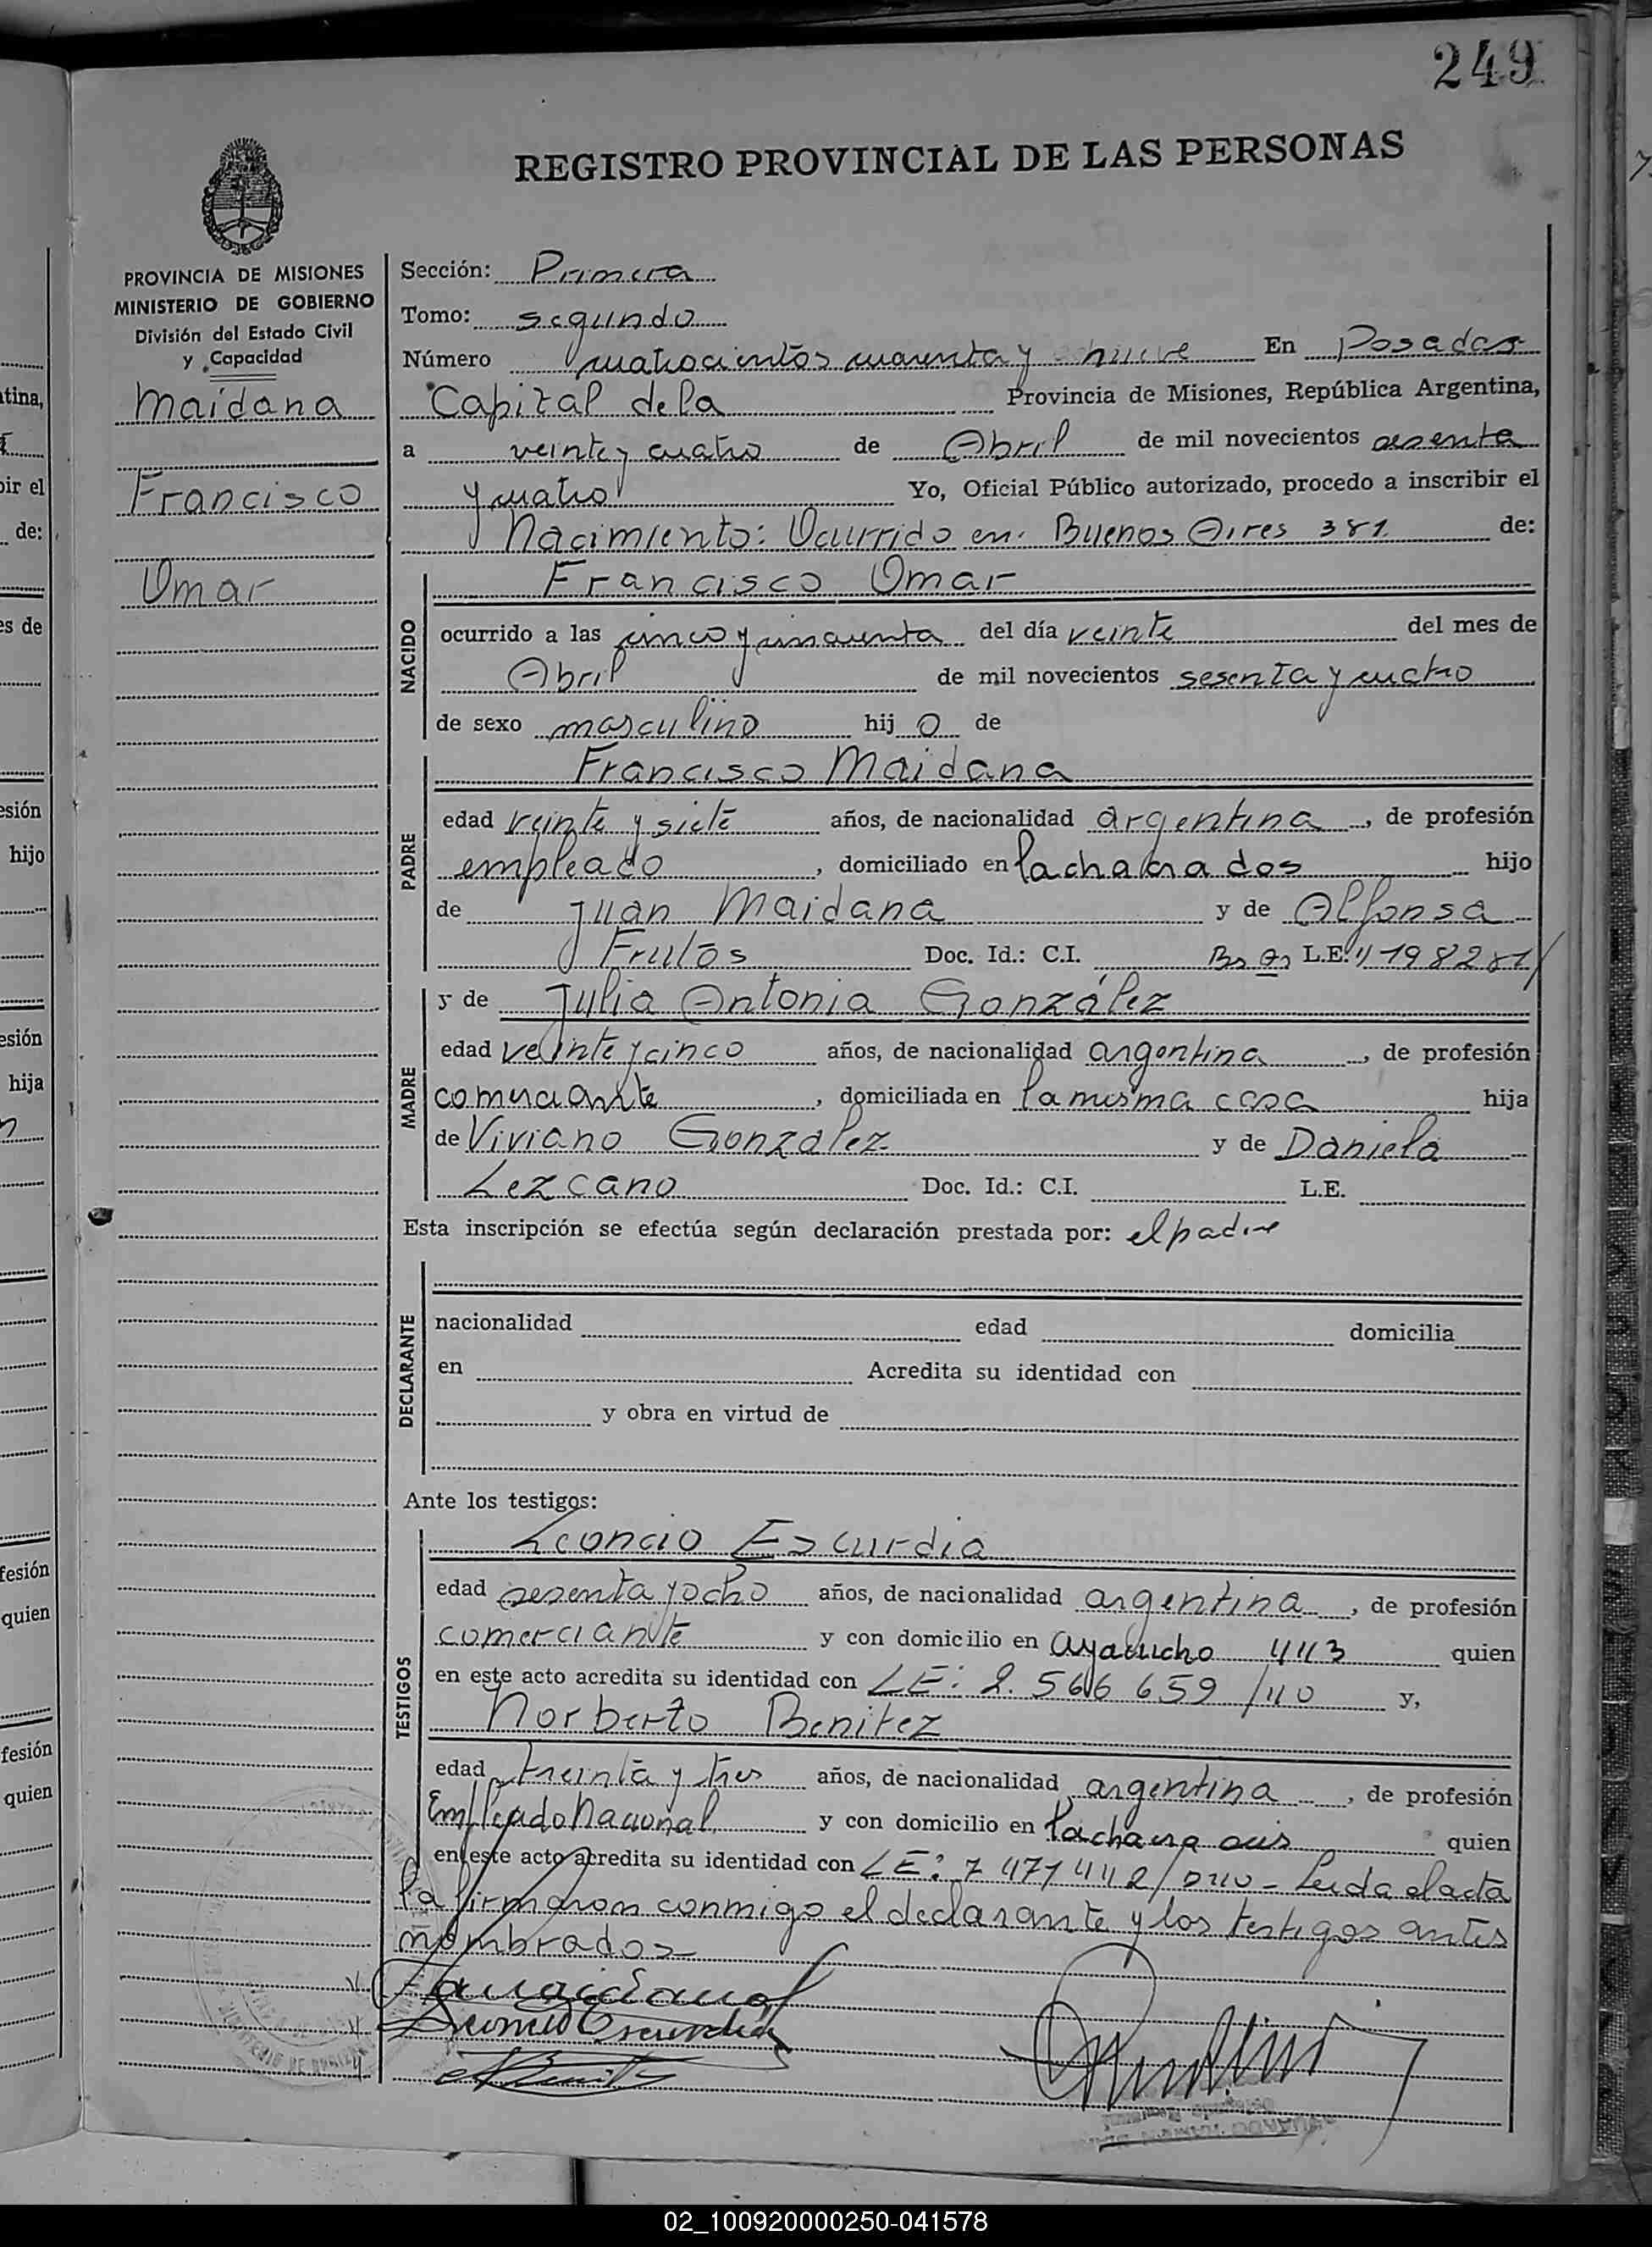 249
REGISTRO PROVINCIAL DE LAS PERSONAS
PROVINCIA DE MISIONES
MINISTERIO DE GOBIERNO
División del Estado Civil
y Capacidad
Maidana
Francisco
Omar
Sección: Primera
Tomo: segundo
Número cuatrocientos cuarenta y nueve En Posadas
Capital de la Provincia de Misiones, República Argentina,
a veinte y cuatro de Abril de mil novecientos sesenta
y cuatro Yo, Oficial Público autorizado, procedo a inscribir el
Nacimiento: Ocurrido en. Buenos Aires 381 de:
NACIDO
Francisco Omar
ocurrido a las cinco y cincuenta del día veinte del mes de
Abril de mil novecientos sesenta y cuatro
de sexo masculino hij o de
PADRE
Francisco Maidana
edad veinte y siete años, de nacionalidad argentina, de profesión
empleado, domiciliado en la chacra dos hijo
de Juan Maidana y de Alfonsa
Frutos Doc. Id.: C.I. Bs As L.E.
MADRE
y de Julia Antonia González
edad veinte y cinco años, de nacionalidad argentina, de profesión
comerciante, domiciliada en la misma casa hija
de Viviano González y de Daniela
Lezcano Doc. Id.: C.I. L.E.
Esta inscripción se efectúa según declaración prestada por: el padre
DECLARANTE
nacionalidad edad domicilia
en Acredita su identidad con
y obra en virtud de
Ante los testigos:
TESTIGOS
Leoncio Escurdia
edad sesenta y ocho años, de nacionalidad argentina, de profesión
comerciante y con domicilio en Ayacucho 443 quien
en este acto acredita su identidad con LE: 2.566 659 y,
Norberto Benitez
edad treinta y tres años, de nacionalidad argentina, de profesión
Empleado Nacional y con domicilio en la chacra quien
en este acto acredita su identidad con LE: 7 471 442 Leida el acta
la firmaron conmigo el declarante y los testigos antes
nombrados
02_100920000250-041578